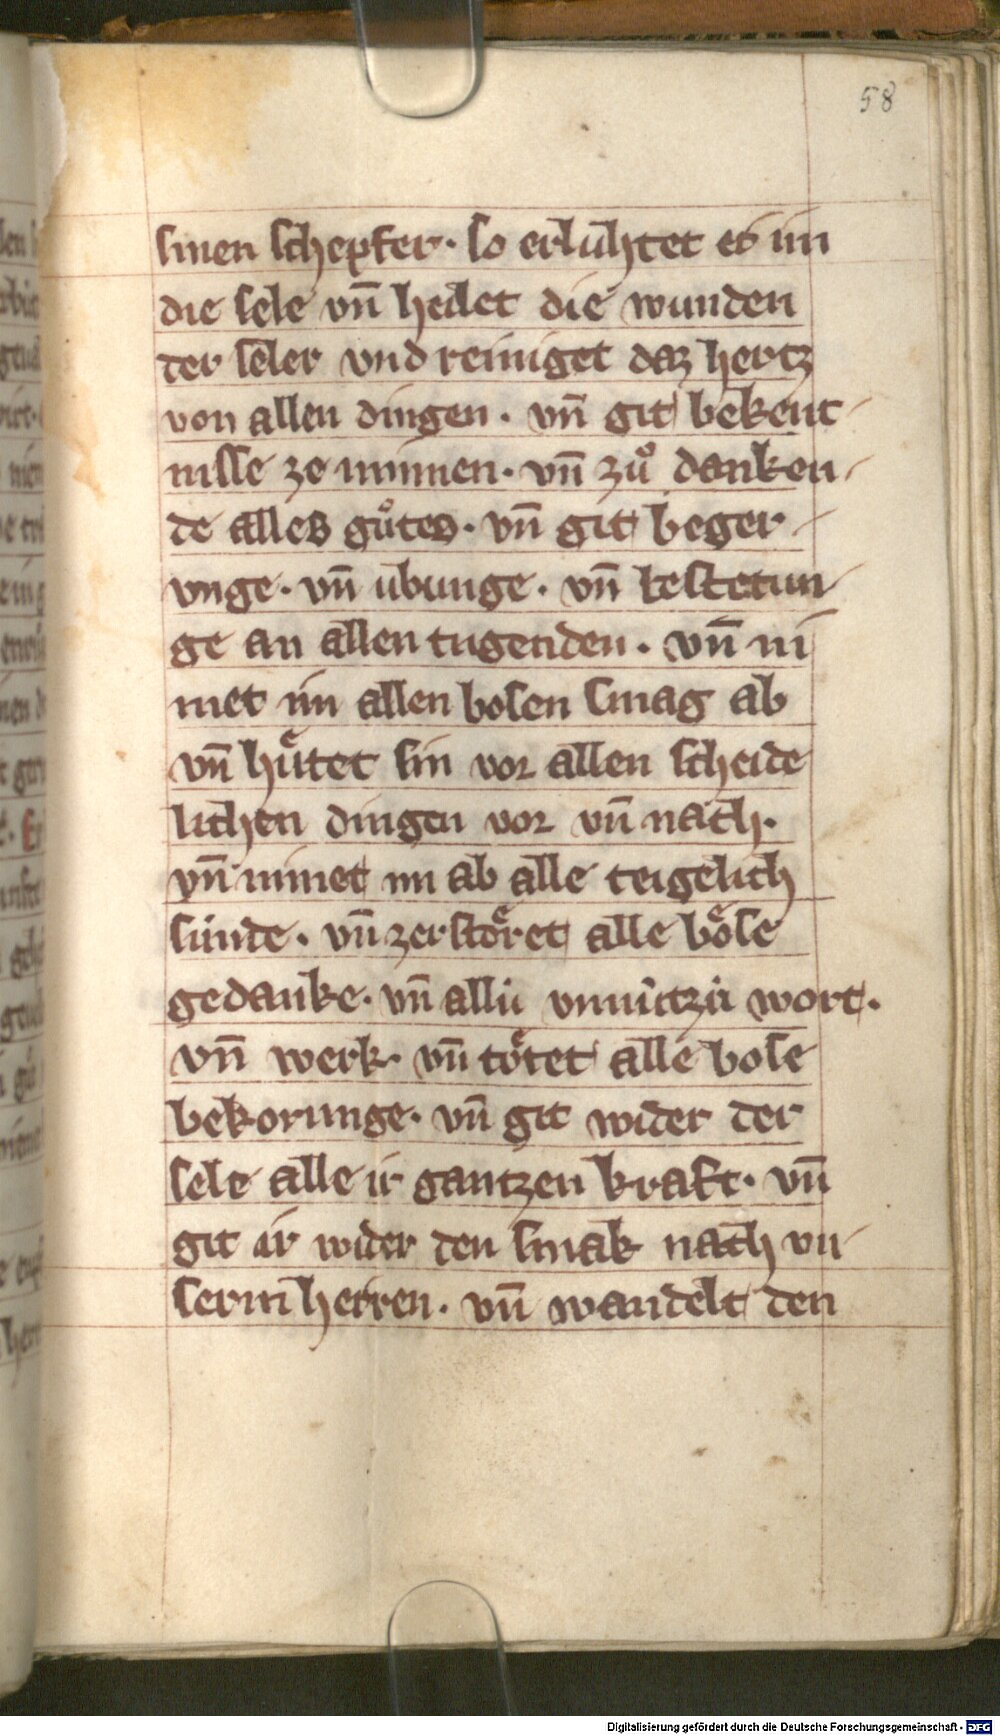 58
sinen schepfer· so erlúhtet es im
die sele vn̄ heilet die wunden
der seler vnd reiniget daz hertz
von allen dingen · vn̄ git bekent-
nisse ze minnen· vn̄ zuͦ danken-
de alles guͦtes· vn̄ git beger-
vnge· vn̄ úbunge· vn̄ bestetun-
ge an allen tugenden· vn̄ ni
met im allen bosen smag ab
vn̄ huͤtet sin vor allen scheide
lichen dingen vor vn̄ nach·
vn̄ nimet im ab alle tegelich
súnde· vn̄ zerstoͤret alle boͤse
gedanke· vn̄ allú vnnútzú wort·
vn̄ werk· vn̄ toͤtet alle bose
bekorunge· vn̄ git wider der
sele alle ir gantzen kraft· vn̄
git ir wider den smak nach vn-
serm herren· vn̄ wandelt den
Digitalisierung gefördert durch die Deutsche Forschungsgemeinschaft - DFG